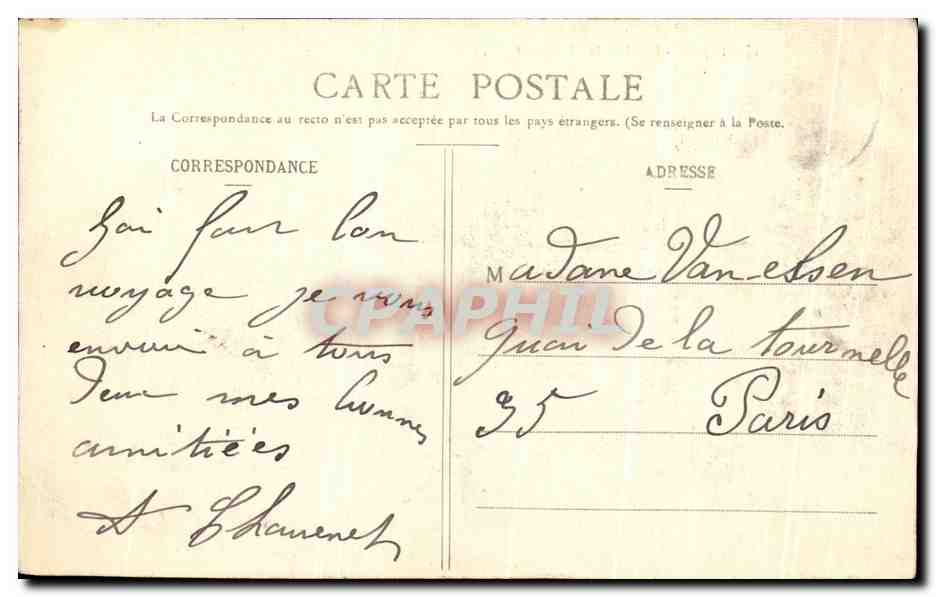 CARTE POSTALE
La Correspondance au recto n'est pas acceptée par tous les pays étrangers. (Se renseigner à la Poste.
CORRESPONDANCE
jai fait bon
voyage je vous
envoie à tous
deux mes bonnes
amitiées
A Thauvenet
ADRESSE
Madame Van-essen
quai de la tournelle
35 Paris
CPAPHIL